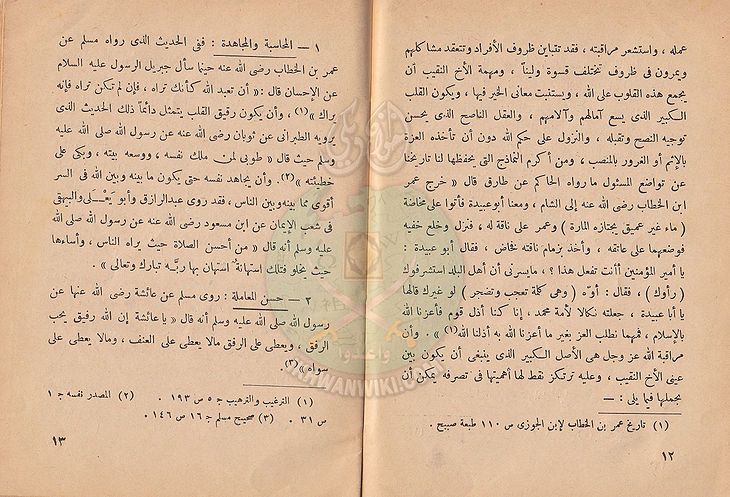 عمله ، واستشعر مراقبته ، فقد تتباين ظروف الأفراد وتتعقد مشاكلهم
ويمرون فى ظروف تختلف قسوة وليناً ، ومهمة الأخ النقيب أن
يجمع هذه القلوب على الله ، ويستنبت معانى الخير فيها ، ويكون القلب
الكبير الذى يسع آمالهم وآلامهم ، والعقل الناصح الذى يحسن
توجيه النصح وتقبله ، والنزول على حكم الله دون أن تأخذه العزة
بالإثم أو الغرور بالمنصب ، ومن أكرم النماذج التى يحفظها لنا تاريخنا
عن تواضع المسئول ما رواه الحاكم عن طارق قال « خرج عمر
ابن الخطاب رضى الله عنه إلى الشام ، ومعنا أبو عبيدة فأتوا على مخاضة
( ماء غير عميق يجتازه المارة ) وعمر على ناقة له ، فنزل وخلع خفيه
فوضعهما على عاتقه ، وأخذ بزمام ناقته فخاض ، فقال أبو عبيدة :
يا أمير المؤمنين أأنت تفعل هذا ؟ ، ما يسرنى أن أهل البلد استشرفوك
( رأوك ) ، فقال : أوّه ( وهى كلمة تعجب وتضجر ) لو غيرك قالها
يا أبا عبيدة ، جعلته نكالا لأمة محمد ، إنا كنا أذل قوم فأعزنا الله
بالإسلام ، فمهما نطلب العز بغير ما أعزنا الله به أذلنا الله(١) » . وأن
مراقبة الله عز وجل هى الأصل الكبير الذى ينبغى أن يكون بين
عينى الأخ النقيب ، وعليه ترتكز نقط لها أهميتها فى تصرفه يمكن أن
يجملها فيما يلى : —
(١) تاريخ عمر بن الخطاب لإبن الجوزى ص ١١٠ طبعة صبيح .
١٢
١ — المحاسبة والمجاهدة : ففى الحديث الذى رواه مسلم عن
عمر بن الخطاب رضى الله عنه حينما سأل جبريل الرسول عليه السلام
عن الإحسان قال : « أن تعبد الله كأنك تراه ، فإن لم تكن تراه فإنه
يراك »(١) ، وأن يكون رقيق القلب يتمثل دائماً ذلك الحديث الذى
يرويه الطبرانى عن ثوبان رضى الله عنه عن رسول الله صلى الله عليه
وسلم حيث قال « طوبى لمن ملك نفسه ، ووسعه بيته ، وبكى على
خطيئته »(٢). وأن يجاهد نفسه حتى يكون ما بينه وبين الله فى السر
أقوى مما بينه وبين الناس ، فقد روى عبدالرازق وأبو يَعْــلَى والبيهقى
فى شعب الإيمان عن ابن مسعود رضى الله عنه عن رسول الله صلى الله
عليه وسلم أنه قال « من أحسن الصلاة حيث يراه الناس ، وأساءها
حيث يخلو فتلك استهانة استهان بها ربَّه تبارك وتعالى » .
٢ — حسن المعاملة : روى مسلم عن عائشة رضى الله عنها عن
رسول الله صلى الله عليه وسلم أنه قال « يا عائشة إن الله رفيق يحب
الرفق ، ويعطى على الرفق مالا يعطى على العنف ، ومالا يعطى على
سواه »(٣).
(١) الترغيب والترهيب ج ٥ ص ١٩٣ . (٢) المصدر نفسه ج ١
ص ٣١ . (٣) صحيح مسلم ج ١٦ ص ١٤٦ .
١٣
وأعدوا
IKHWANWIKI.COM